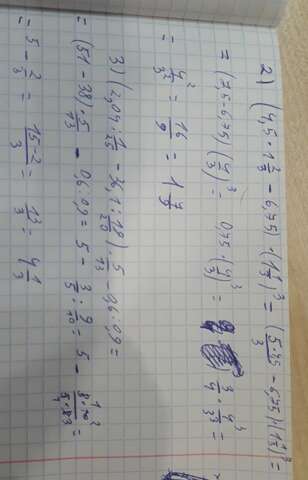 2) (4,5 · 1 2/3 - 6,75) · (1 1/3)³ = (5·4,5/3 - 6,75) · (1 1/3)³ =
= (7,5 - 6,75) · (4/3)³ = 0,75 · (4/3)³ = 3/4 · 4³/3³ =
= 4²/3² = 16/9 = 1 7/9
3) (2,04 : 1/25 - 36,1 : 19/20) · 5/13 - 0,6 : 0,9 =
= (51 - 38) · 5/13 - 0,6 : 0,9 = 5 - 3/5 : 9/10 = 5 -
= 5 - 2/3 = 15-2/3 = 13/3 = 4 1/3